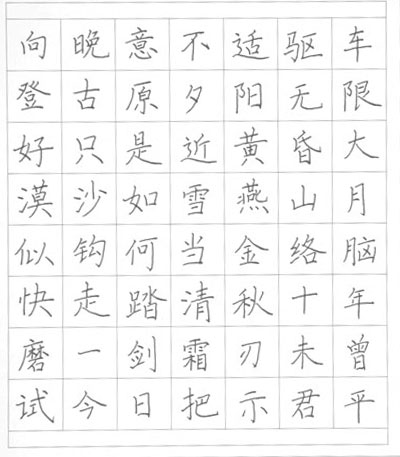 向晚意不适驱车
登古原夕阳无限
好只是近黄昏大
漠沙如雪燕山月
似钩何当金络脑
快走踏清秋十年
磨一剑霜刃未曾
试今日把示君平